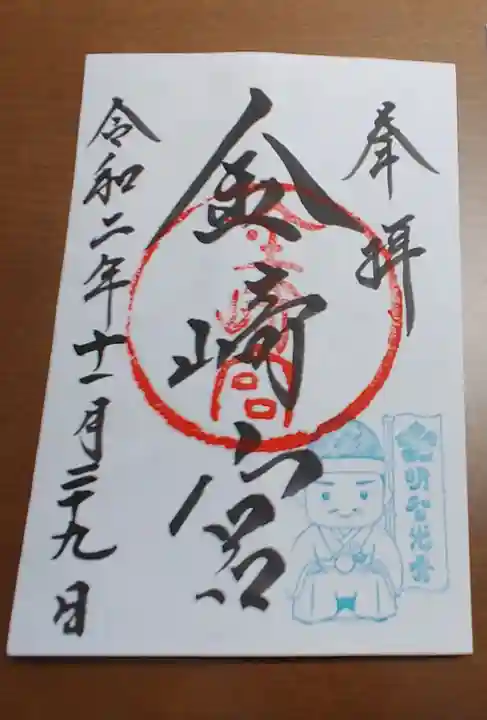 奉拝
金崎宮
金崎宮
令和二年十一月二十九日
明智光秀